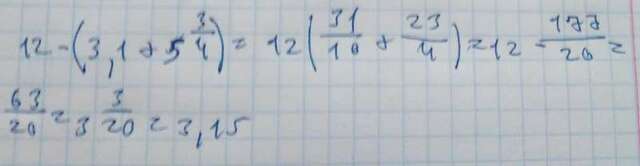 12 - (3,1 + 5 3/4) = 12 (31/10 + 23/4) = 12 - 177/20 =
63/20 = 3 3/20 = 3,15